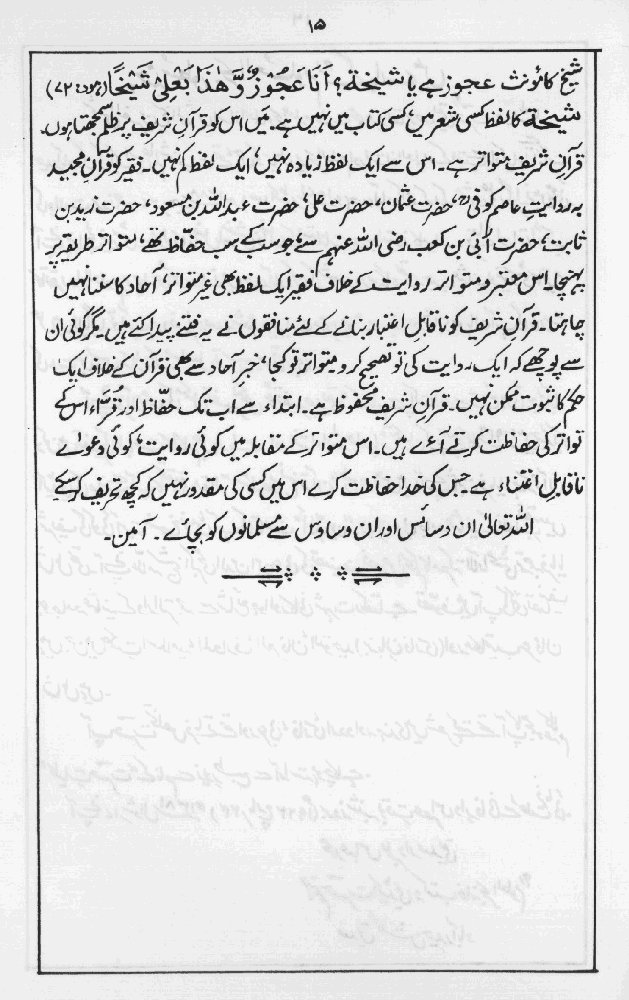 ۱۵
شیخ کا مونث عجوز ہے یا شیخۃ؟ أَنَا عَجُوْزٌ وَّ هٰذَا بَعْلِیْ شَیْخًا (ہود: ۷۲)
شیخۃ کا لفظ کسی شعر میں، کسی کتاب میں نہیں ہے۔ میں اس کو قرآن شریف پر ظلم سمجھتا ہوں۔
قرآن شریف متواتر ہے۔ اس سے ایک لفظ زیادہ نہیں، ایک لفظ کم نہیں۔ فقیر کو قرآن مجید
بہ روایتِ عاصم کوفیؒ، حضرت عثمان، حضرت علی، حضرت عبداللہ بن مسعود، حضرت زید بن
ثابت، حضرت اُبَیّ بن کعب رضی اللہ عنہم سے، جو سب کے سب حفّاظ تھے، متواتر طریقہ پر
پہنچا۔ اس معتبر و متواتر روایت کے خلاف فقیر ایک لفظ بھی غیر متواتر، آحاد کا سننا نہیں
چاہتا۔ قرآن شریف کو ناقابلِ اعتبار بنانے کے لئے منافقوں نے یہ فتنے پیدا کئے ہیں۔ مگر کوئی ان
سے پوچھے کہ ایک روایت کی تو تصحیح کرو، متواتر تو کجا، خبرِ آحاد سے بھی قرآن کے خلاف ایک
حکم کا ثبوت ممکن نہیں۔ قرآن شریف محفوظ ہے۔ ابتداء سے اب تک حفّاظ اور قُرّاء اس کے
تواتر کی حفاظت کرتے آئے ہیں۔ اس متواتر کے مقابلہ میں کوئی روایت، کوئی دعوےٰ
ناقابلِ اعتناء ہے۔ جس کی خدا حفاظت کرے اس میں کسی کی مقدور نہیں کہ کچھ تحریف کرسکے
اللہ تعالیٰ ان دسائس اور ان وساوس سے مسلمانوں کو بچائے۔ آمین۔